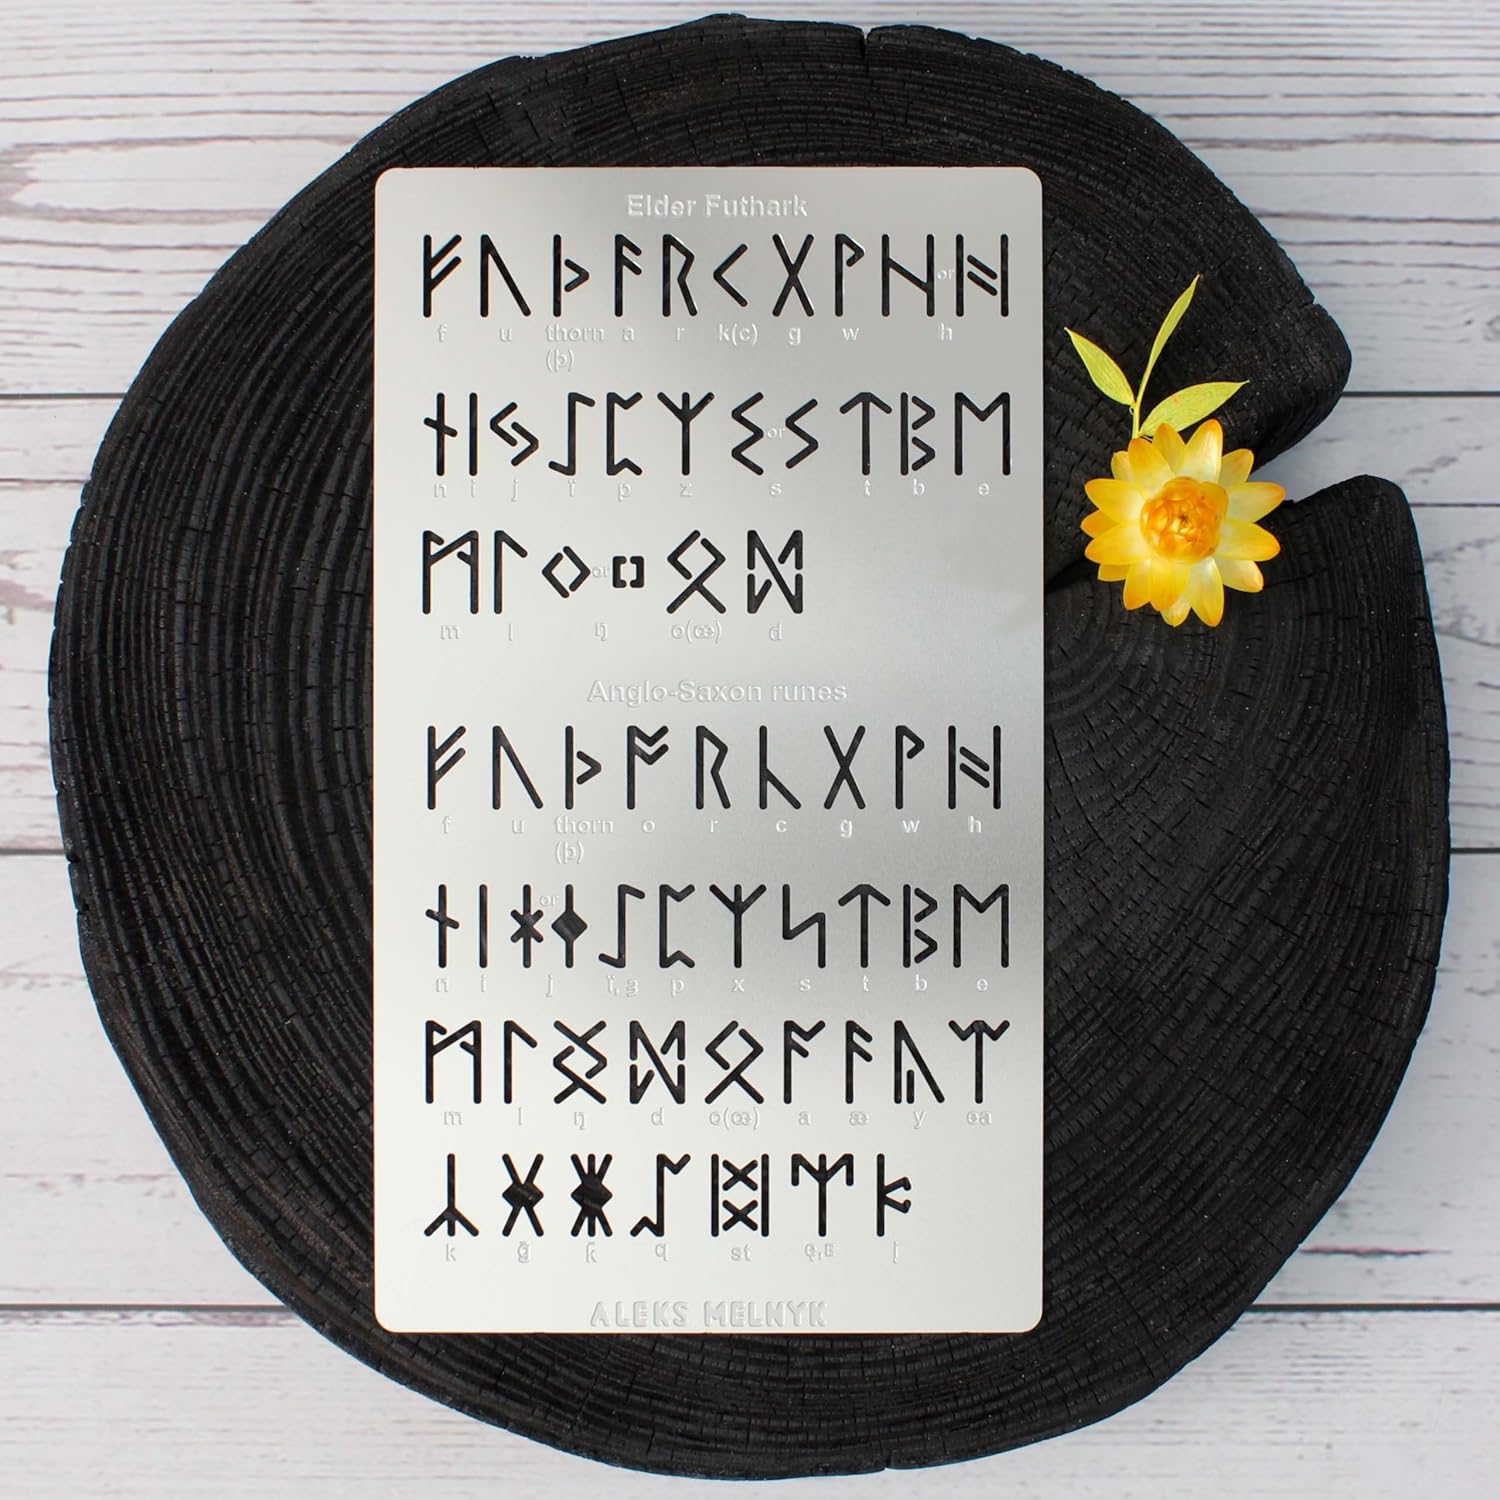 Elder Futhark
ᚠ ᚢ ᚦ ᚨ ᚱ ᚲ ᚷ ᚹ ᚺ or ᚻ
f u thorn a r k(c) g w h
(þ)
ᚾ ᛁ ᛃ ᛇ ᛈ ᛉ ᛊ or ᛋ ᛏ ᛒ ᛖ
n i j ï p z s t b e
ᛗ ᛚ ᛜ or ᛜ ᛟ ᛞ
m l ŋ o(œ) d
Anglo-Saxon runes
ᚠ ᚢ ᚦ ᚩ ᚱ ᚳ ᚷ ᚹ ᚻ
f u thorn o r c g w h
(þ)
ᚾ ᛁ ᛡ or ᛄ ᛇ ᛈ ᛉ ᛋ ᛏ ᛒ ᛖ
n i j ï,ʒ p x s t b e
ᛗ ᛚ ᛝ ᛞ ᛟ ᚪ ᚫ ᚣ ᛠ
m l ŋ d o(œ) a æ y ea
ᛣ ᚸ ᛤ ᛢ ᛥ
k ḡ k̄ q st j
ALEKS MELNYK